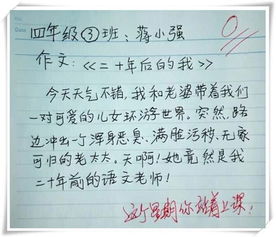 四年级③班：蒋小强
0
作文：《二十年后的我》
今天天气不错，我和老婆带着我们
一对可爱的儿女环游世界。突然，路
边冲出一个浑身恶臭、满脸污秽、无家
可归的老太太，天啊！她竟然是我
二十年前的语文老师！
这个星期你站着上课！